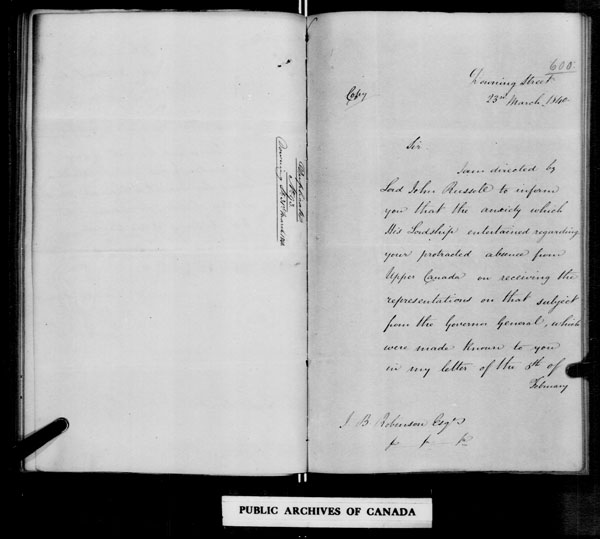 Duplicate
Downing St
600
Copy
Downing Street
23rd March, 1840
Sir
I am directed by
Lord John Russell to inform
you that the anxiety which
His Lordship entertained regarding
your protracted absence from
Upper Canada on receiving the
representations on that subject
from the Governor General, which
were made known to you
in my letter of the 8th of
February
J B Robinson Esqre
PUBLIC ARCHIVES OF CANADA